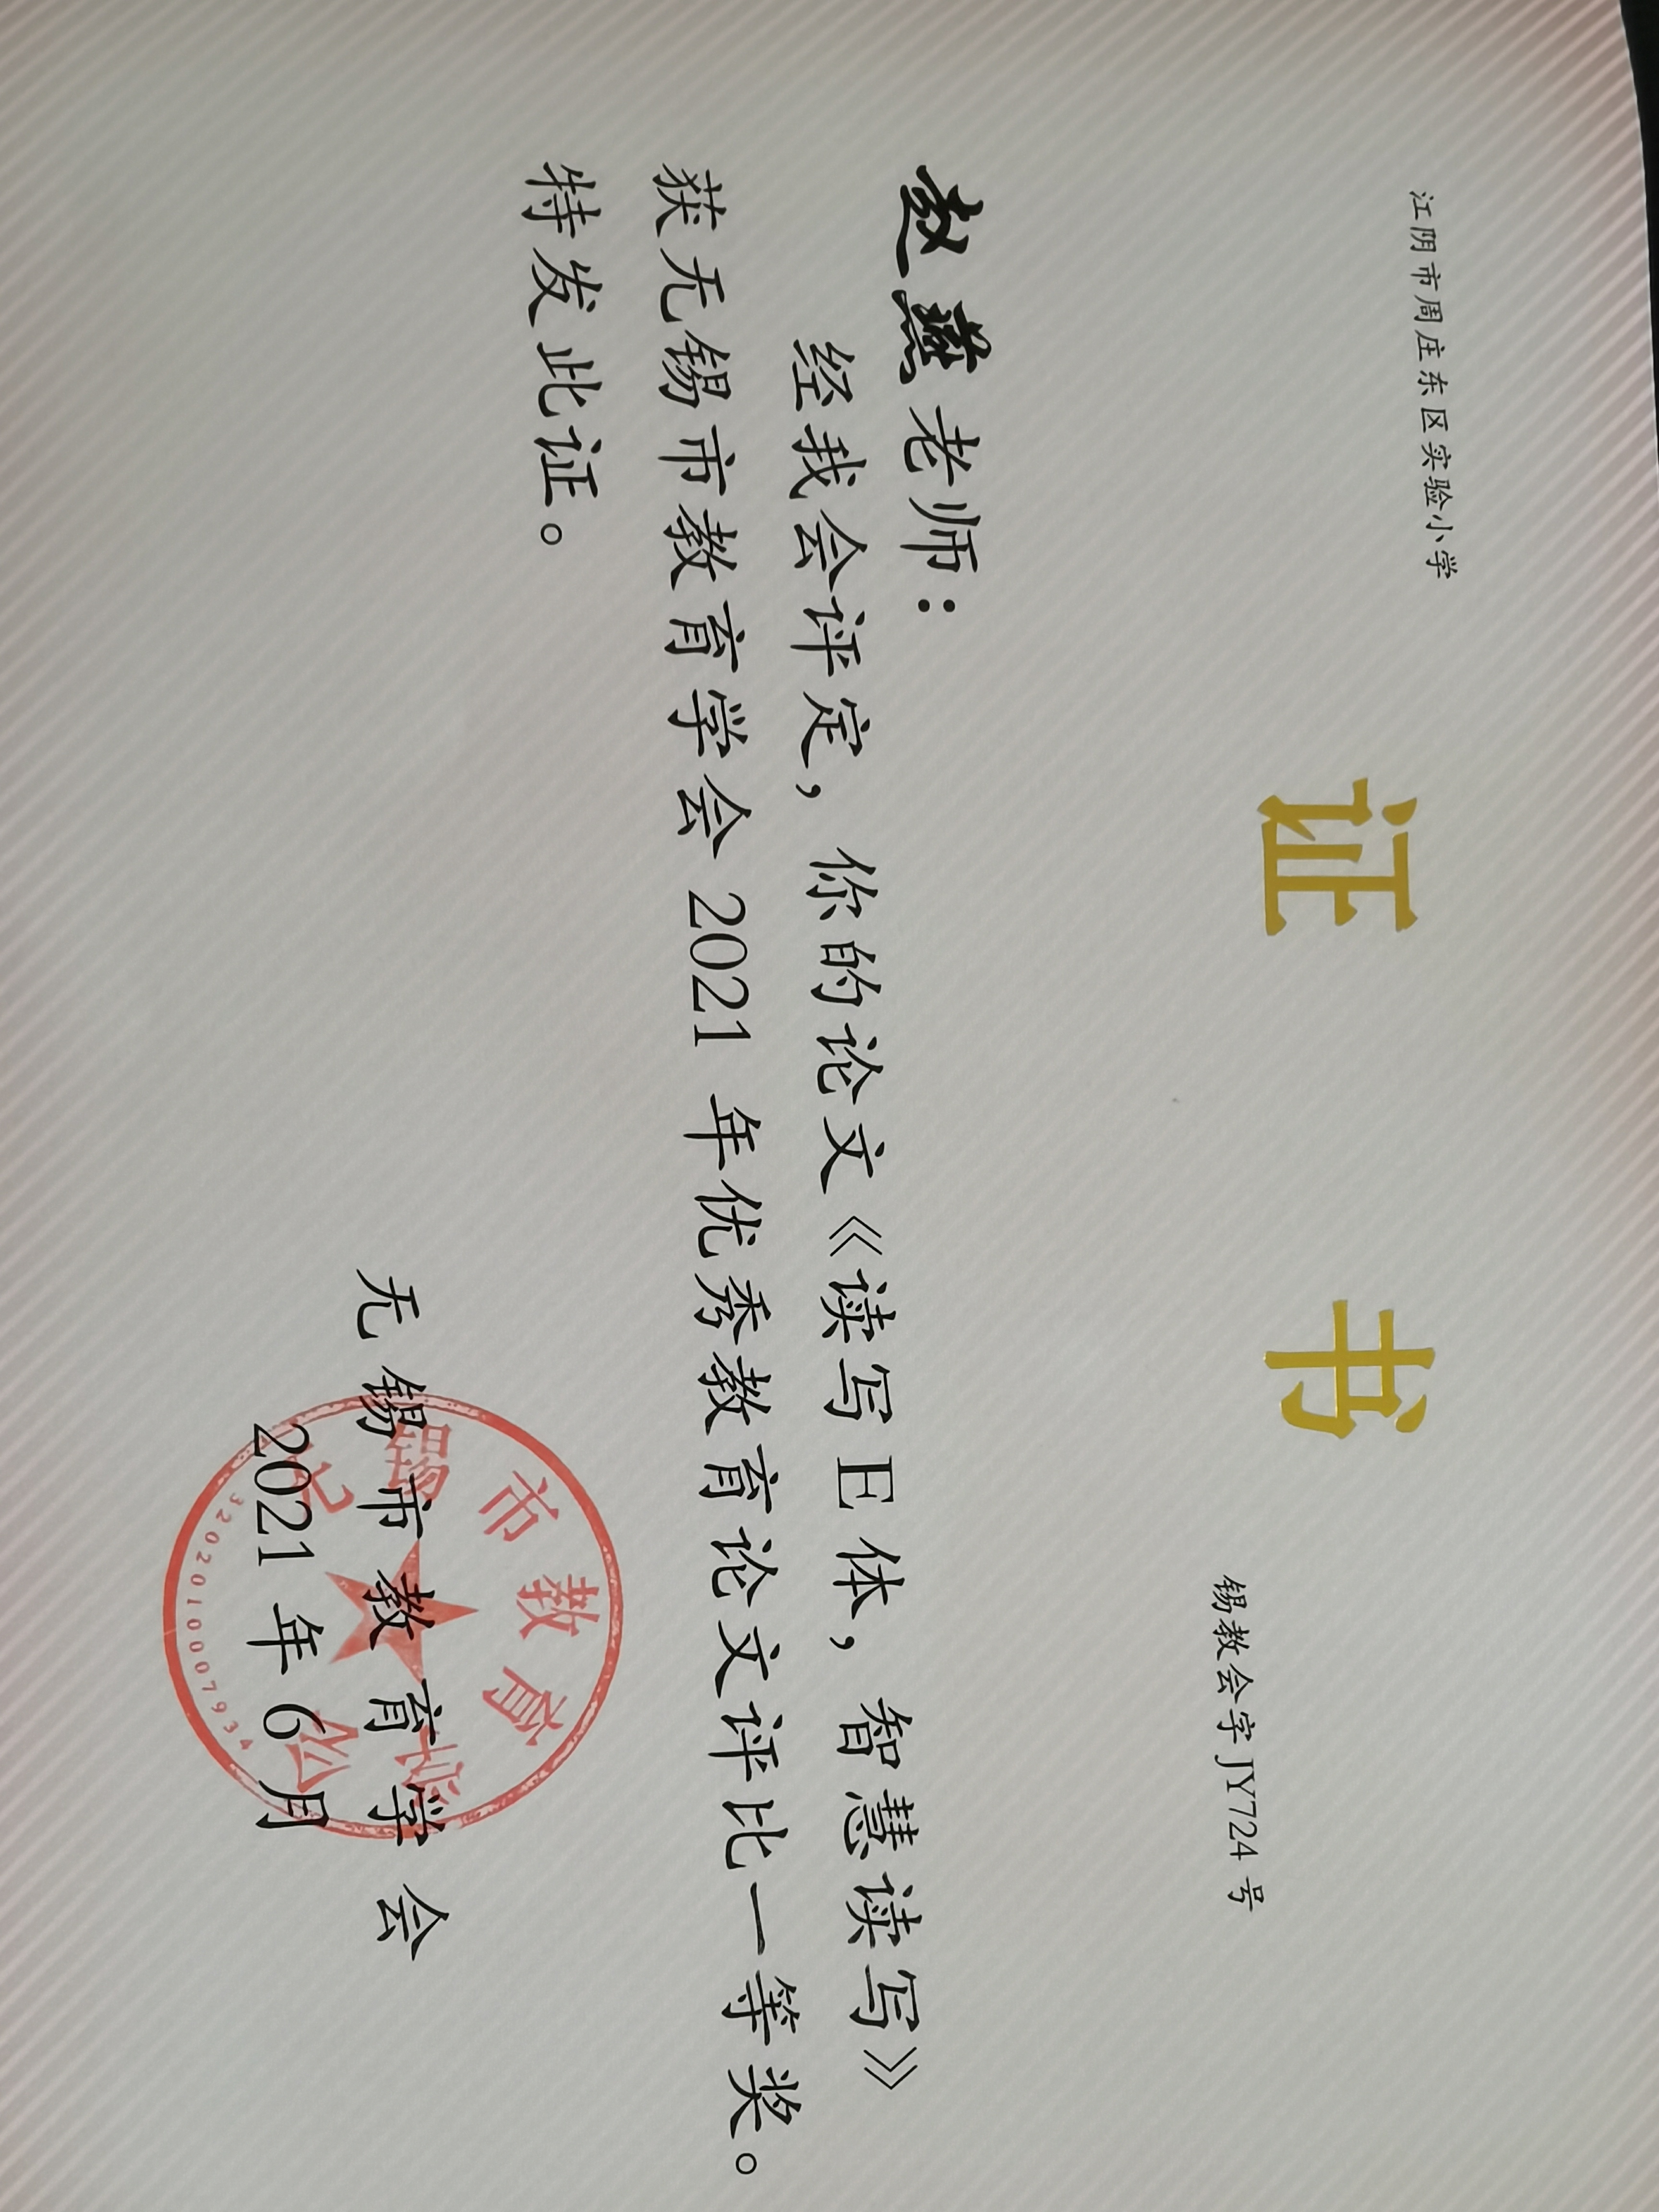 江阴市周庄东区实验小学
证 书
锡教会字 JY724 号
赵燕老师：
经我会评定，你的论文《读写 E 体，智慧读写》
获无锡市教育学会 2021 年优秀教育论文评比一等奖。
特发此证。
无锡市教育学会
2021 年 6 月
无锡市教育学会
3202010007934